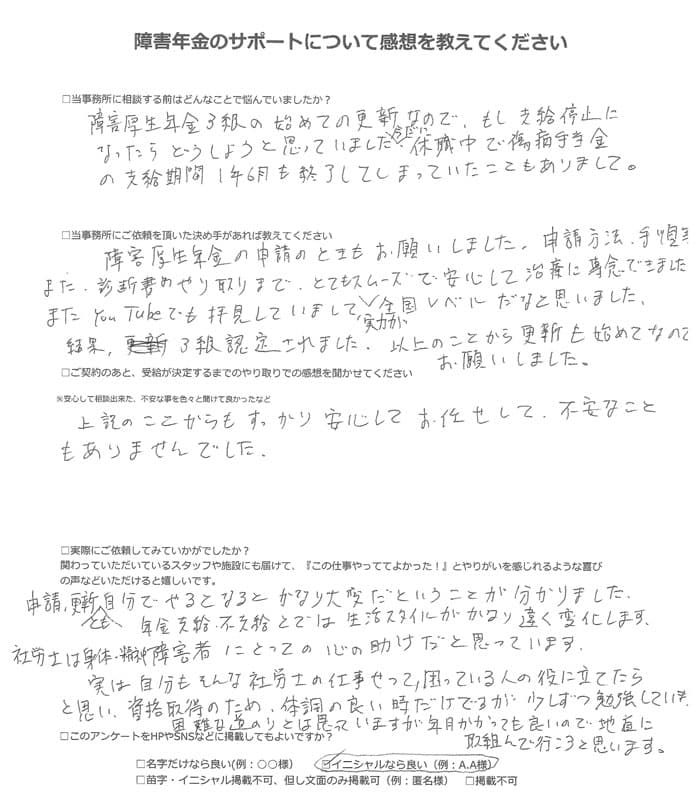 障害年金のサポートについて感想を教えてください
□当事務所に相談する前はどんなことで悩んでいましたか？
障害厚生年金3級の始めての更新なので、もし支給停止に
なったらどうしようと思っていました。休職中で傷病手当金
の支給期間1年6月も終了してしまっていたこともありまして。
□当事務所にご依頼を頂いた決め手があれば教えてください
障害厚生年金の申請のときもお願いしました。申請方法、手順等
また、診断書のやり取りまで、とてもスムーズで安心して治療に専念できました
また YouTubeでも拝見していまして、実力が全国レベルだなと思いました。
結果、3級認定されました。以上のことから更新も始めてなので
お願いしました。
□ご契約のあと、受給が決定するまでのやり取りでの感想を聞かせてください
※安心して相談出来た、不安な事を色々と聞けて良かったなど
上記のここからもすっかり安心してお任せして、不安なこと
もありませんでした。
□実際にご依頼してみていかがでしたか？
関わっていただいているスタッフや施設にも届けて、『この仕事やっててよかった！』とやりがいを感じれるような喜び
の声などいただけると嬉しいです。
申請、更新とも自分でやるとなるとかなり大変だということが分かりました。
年金支給・不支給とでは生活スタイルがかなり違く変化します。
社労士は身体・精神障害者にとっての心の助けだと思っています。
実は自分もそんな社労士の仕事やって、困っている人の役に立てたら
と思い、資格取得のため、体調の良い時だけでるが少しずつ勉強しています
困難な道のりとは思っていますが年月かかっても良いので地道に
取組んで行こうと思います。
□このアンケートをHPやSNSなどに掲載してもよいですか？
□名字だけなら良い(例：○○様) ☑イニシャルなら良い（例：A.A様）
□苗字・イニシャル掲載不可、但し文面のみ掲載可（例：匿名様） □掲載不可